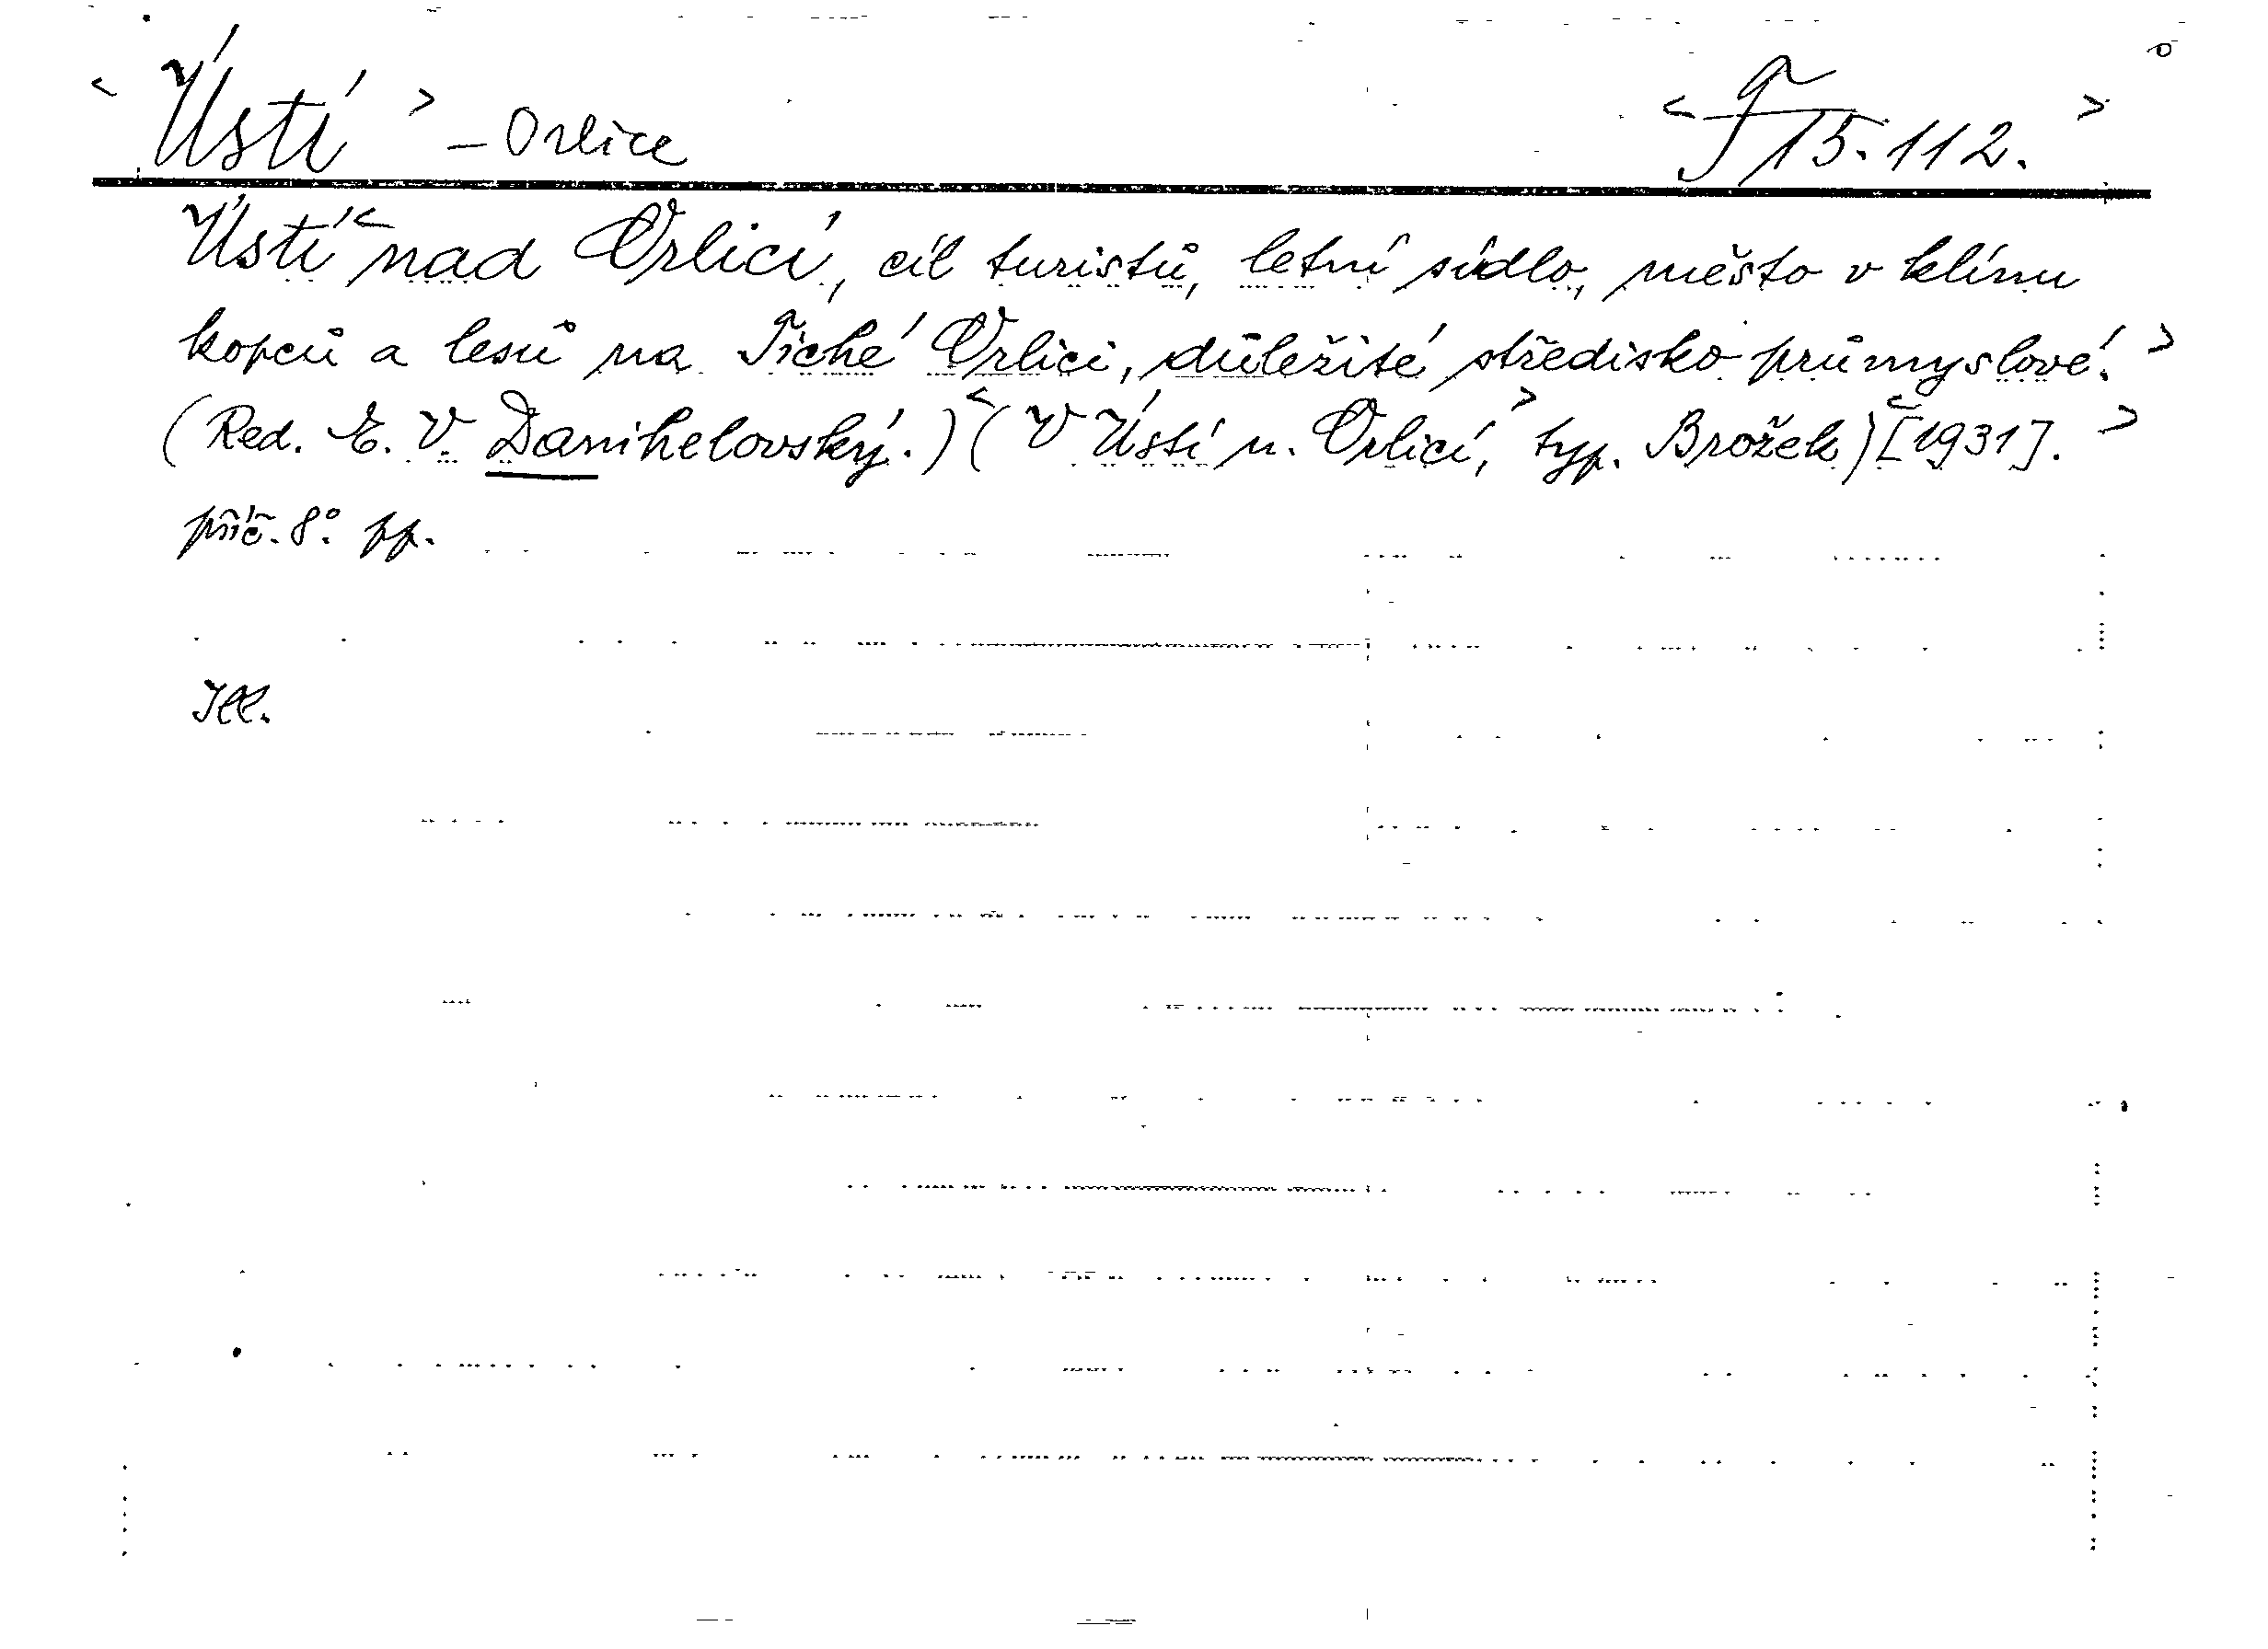 < Ústí > - Orlice < F 15.112. >
Ústí < nad Orlicí, cíl turistů, letní sídlo, město v klínu
kopců a lesů na Tiché Orlici, důležité středisko průmyslové. >
(Red. E. V. Danihelovský.) < (V Ústí n. Orlicí, > typ. Brožek) < [1931]. >
příč. 8°. pp.
Ill.